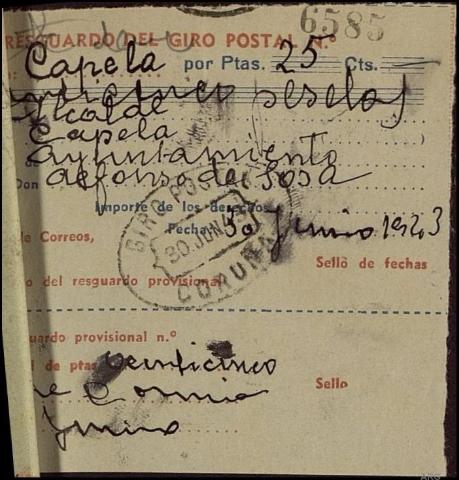 6585
RESGUARDO DEL GIRO POSTAL N.º
Capela por Ptas. 25 Cts.
pesetas
Alcalde
Capela
Ayuntamiento
Alfonso de Sosa
Don
Importe de los derechos
Fecha 30 Junio 1923
GIRO POSTAL
30 JUN
CORUÑA
de Correos,
Sello de fechas
o del resguardo provisional
uardo provisional n.º
l de ptas. veinticinco
Sello
Junio